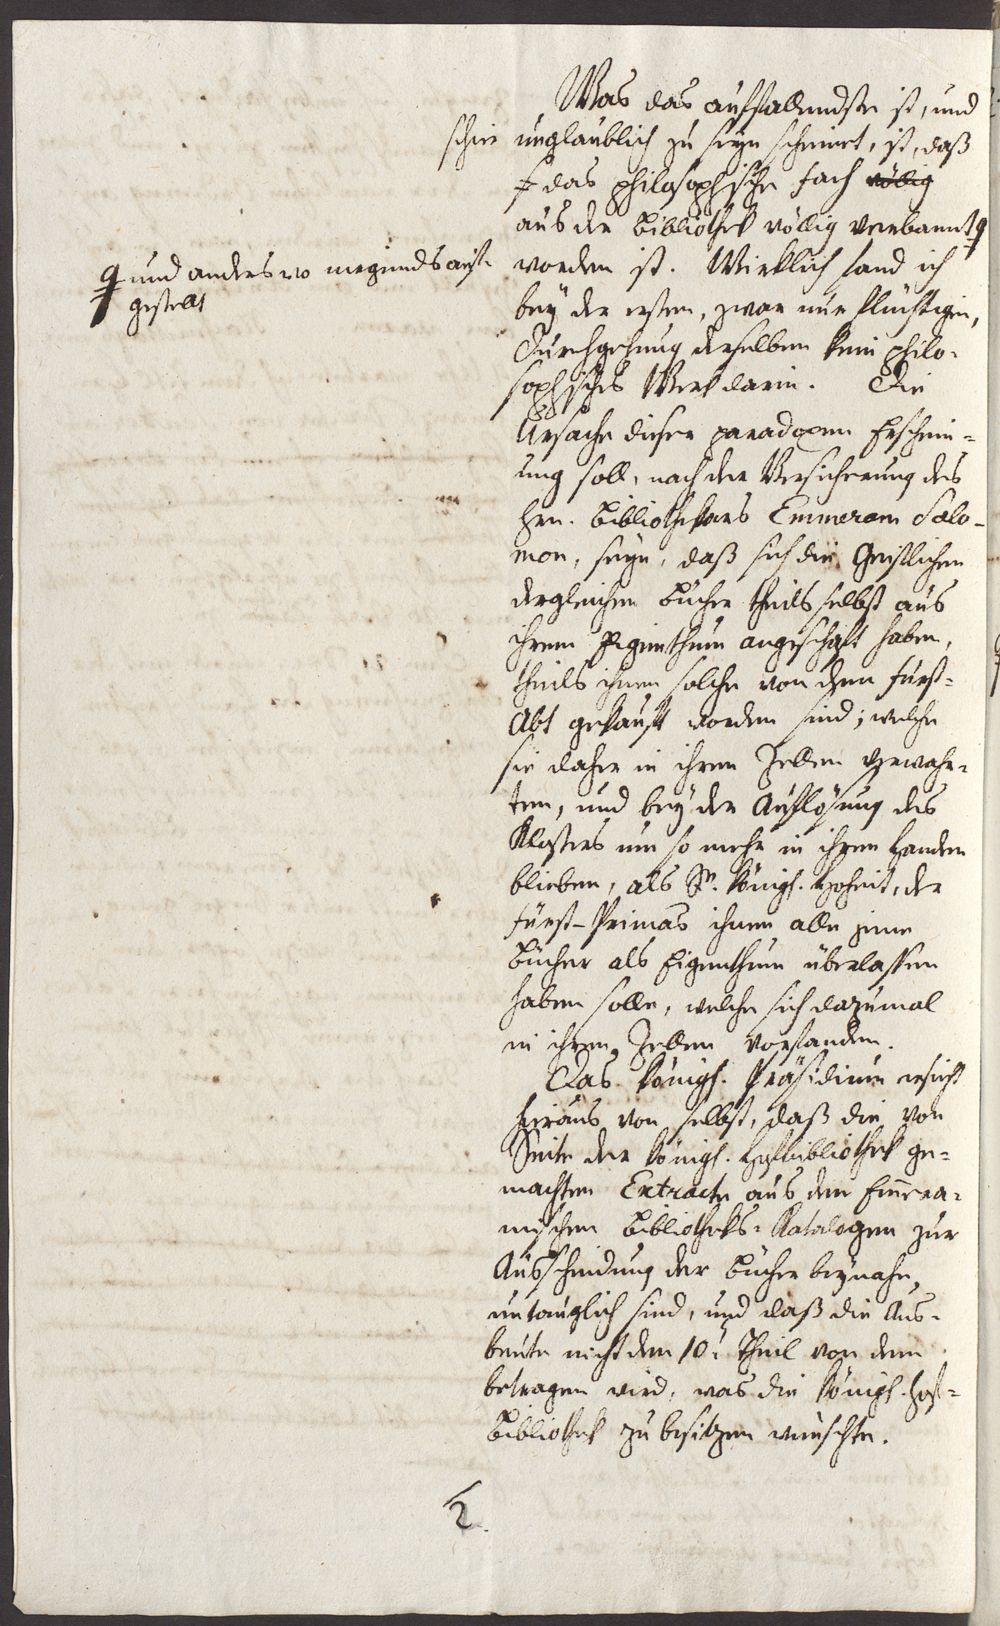 Was das auffallendste ist, und
schier unglaublich zu seyn scheinet, ist, daß
das philosophische Fach völlig
aus der Bibliothek völlig verbannt
worden ist. Wirklich fand ich
und anderswo nirgends auf-
gestellt
bey der ersten, zwar nur flüchtigen,
Durchgehung derselben kein philo-
sophisches Werk darin. Die
Ursache dieser paradoxen Erschein-
ung soll, nach der Versicherung des
Hrn. Bibliothekars Emmeram Salo-
mon, seyn, daß sich die Geistlichen
dergleichen Bücher theils selbst aus
ihrem Eigenthum angeschaft haben,
theils ihnen solche von dem Fürst-
Abt gekauft worden sind; welche
sie daher in ihren Zellen verwahr-
ten, und bey der Auflösung des
Klosters um so mehr in ihren Handen
blieben, als Sr. königl. Hoheit, der
Fürst-Primas ihnen alle jene
Bücher als Eigenthum überlassen
haben solle, welche sich dazumal
in ihren Zellen vorfanden.
Das königl. Präsidium ersieht
hieraus von selbst, daß die von
Seite der königl. Hofbibliothek ge-
machten Extracte aus den Emera-
mischen Bibliotheks-Katalogen zur
Ausscheidung der Bücher beynahe
untauglich sind, und daß die Aus-
beute nicht den 10t. Theil von dem
betragen wird, was die königl. Hof-
Bibliothek zu besitzen wünschte.
2